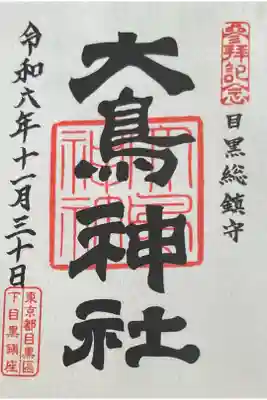 參拜記念
目黒総鎮守
大鳥神社
令和六年十一月三十日
東京都目黒區
下目黒鎮座